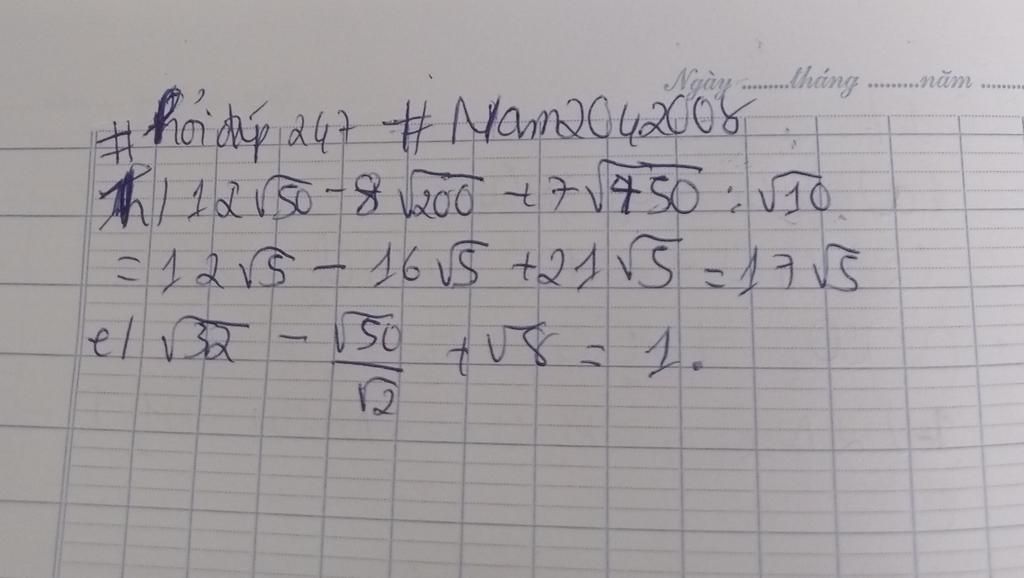 Ngày ........tháng .........năm ......
#hỏi đáp 247 # Nam2042008
h) 12√50 - 8√200 + 7√450 : √10
= 12√5 - 16√5 + 21√5 = 17√5
e) √32 - √50/√2 + √8 = 1.